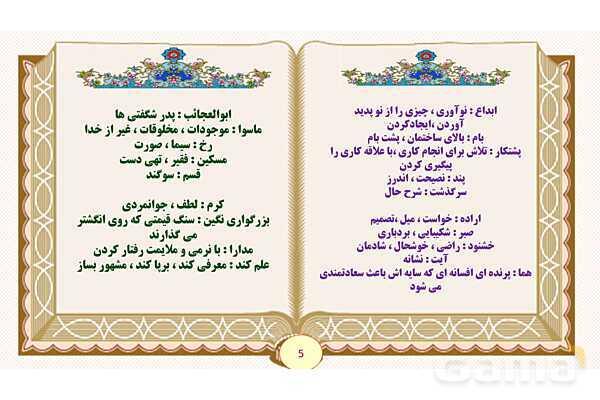 ابداع : نوآوری ، چیزی را از نو پدید
آوردن ،ایجادکردن
بام : بالای ساختمان ، پشت بام
پشتکار : تلاش برای انجام کاری ،با علاقه کاری را
پیگیری کردن
پند : نصیحت ، اندرز
سرگذشت : شرح حال
اراده : خواست ، میل ،تصمیم
صبر : شکیبایی ، بردباری
خشنود : راضی ، خوشحال ، شادمان
آیت : نشانه
هما : پرنده ای افسانه ای که سایه اش باعث سعادتمندی
می شود
ابوالعجائب : پدر شگفتی ها
ماسوا : موجودات ، مخلوقات ، غیر از خدا
رخ : سیما ، صورت
مسکین : فقیر ، تهی دست
قسم : سوگند
کرم : لطف ، جوانمردی
بزرگواری نگین : سنگ قیمتی که روی انگشتر
می گذارند
مدارا : با نرمی و ملایمت رفتار کردن
علم کند : معرفی کند ، برپا کند ، مشهور بساز
5
Gama